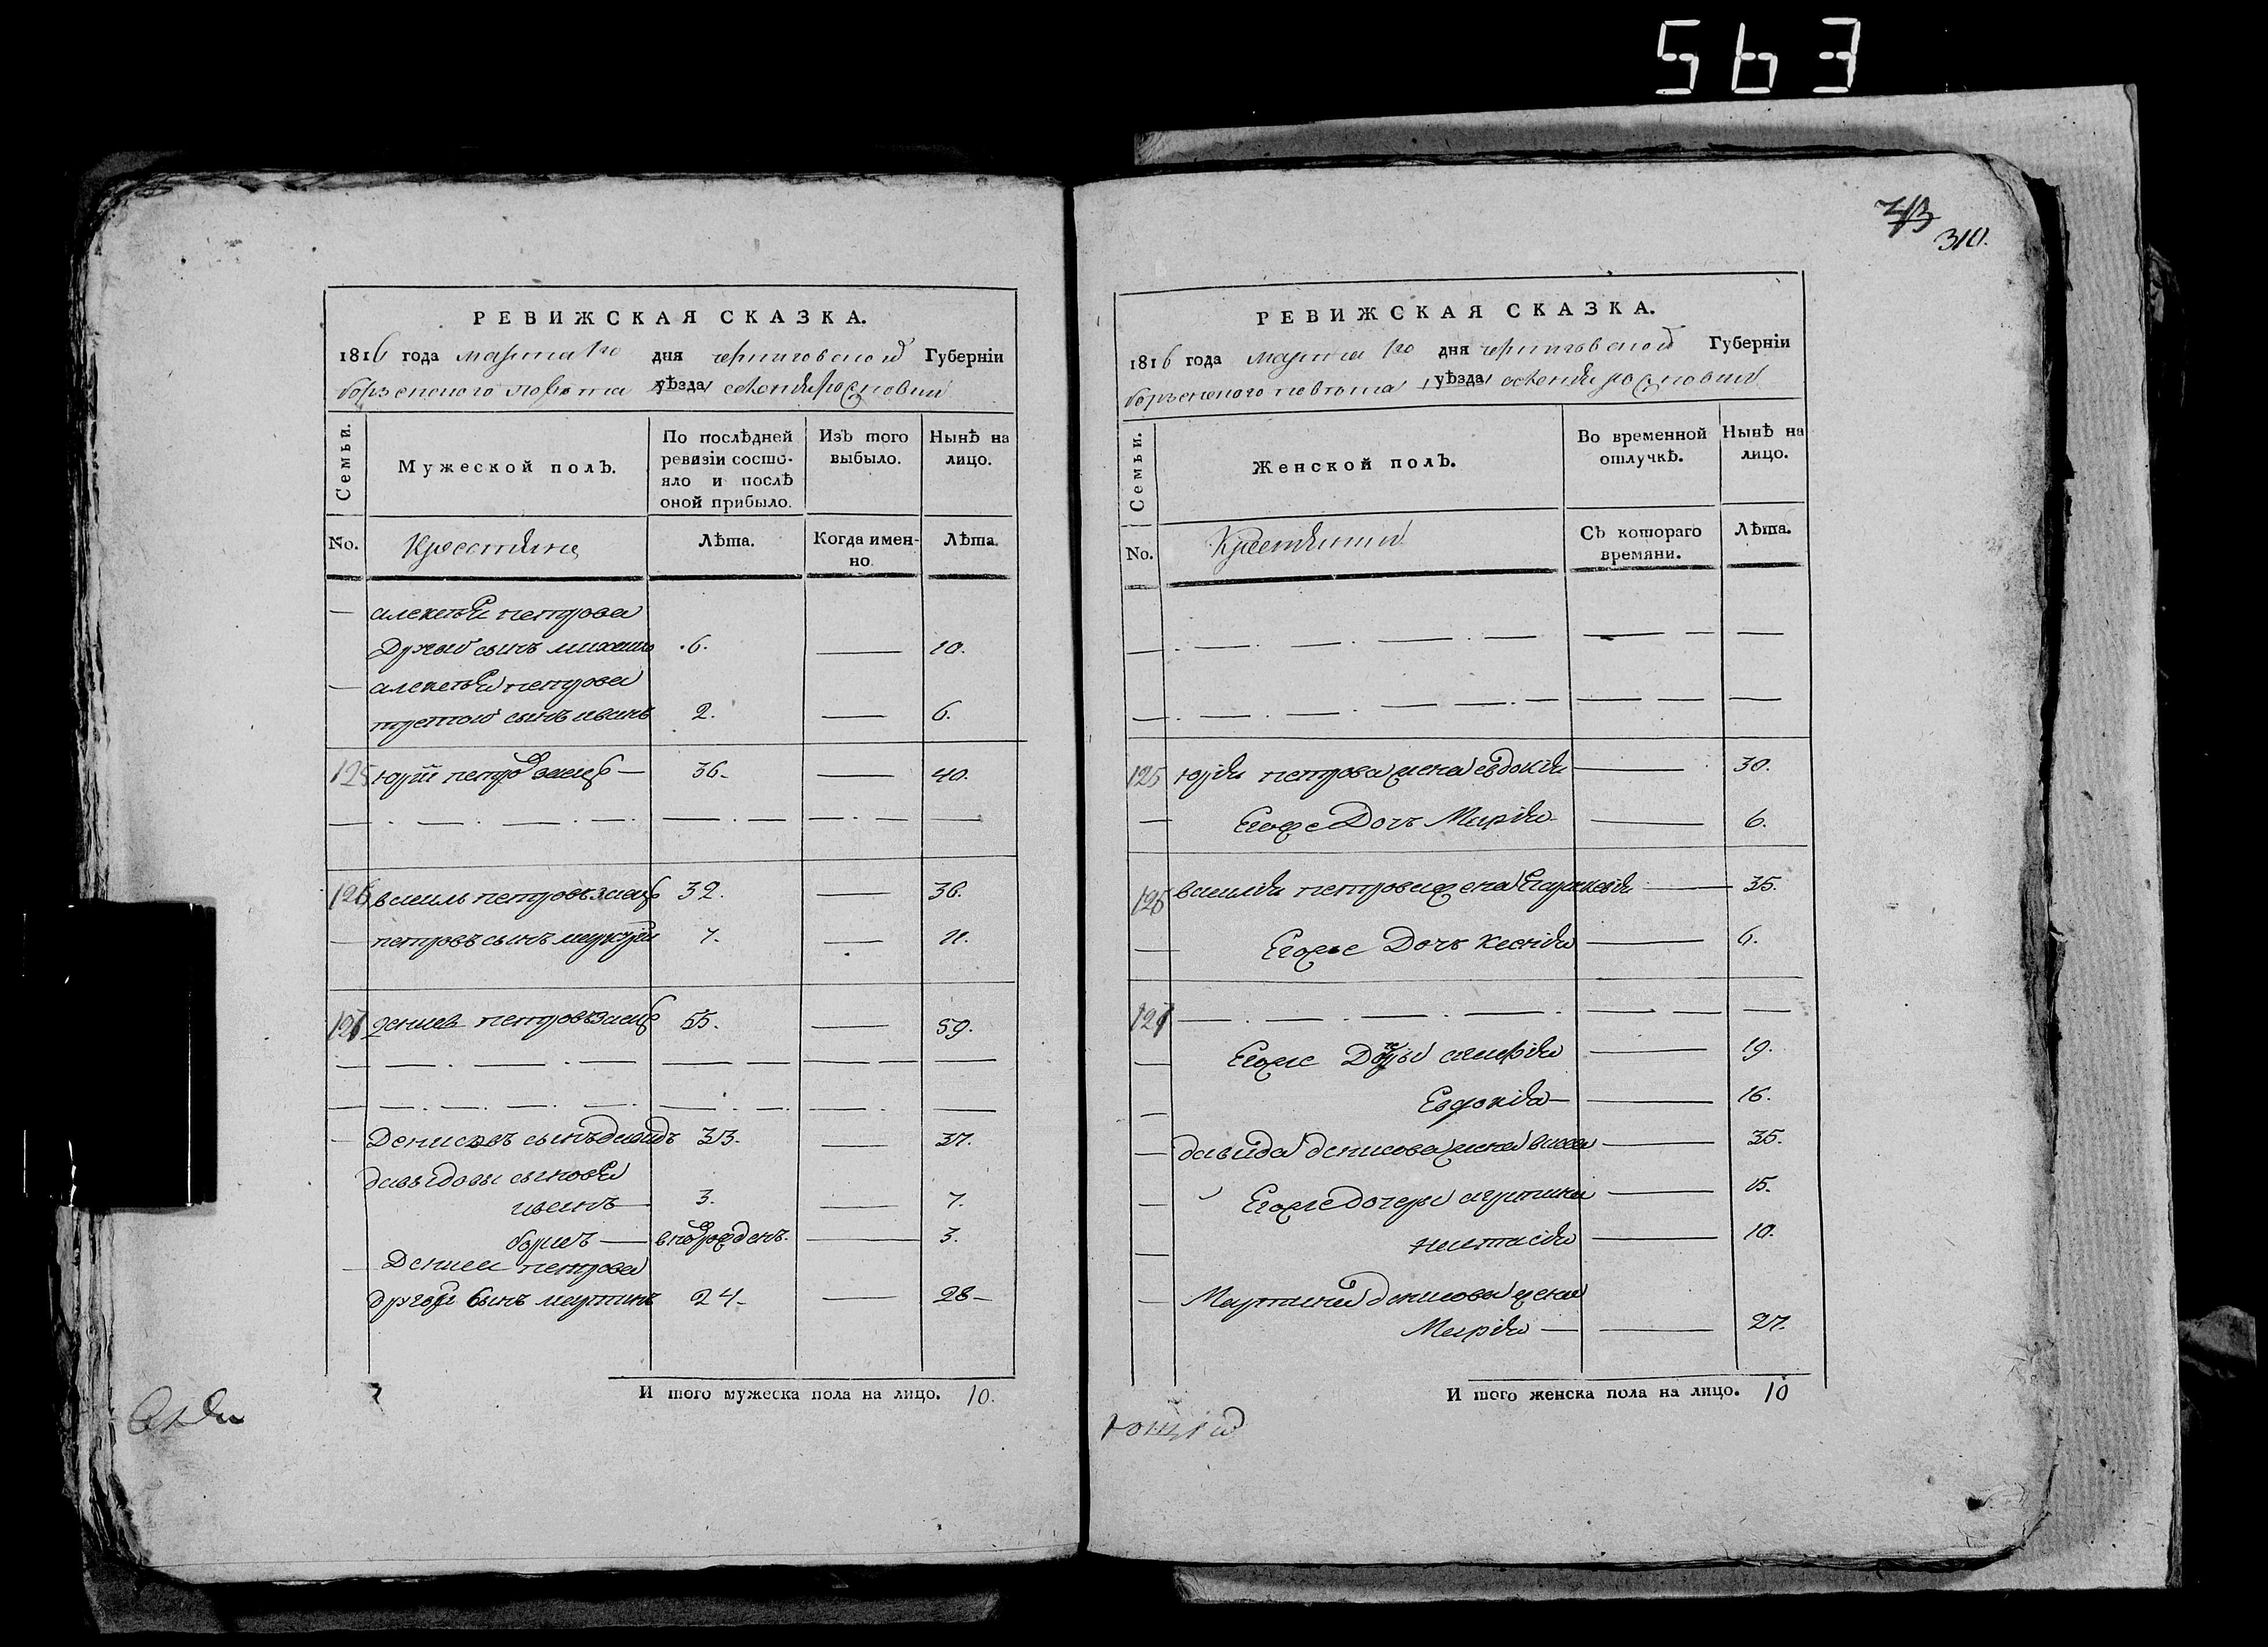 563
310.
РЕВИЖСКАЯ СКАЗКА.
1816 года марта дня черниговской Губерніи
борзенского повета уѣзда
Семьи.
Мужеской полъ.
По послѣдней ревизіи состо-
яло и послѣ
оной прибыло.
Изъ того выбыло.
Нынѣ на лицо.
No.
Крестяне
Лѣта.
Когда имен-
но.
Лѣта.
алексѣя петрова
Другой сынъ михаило 6. 10.
алексѣя петрова
третой сынъ иванъ 2. 6.
125 юрій петровъ заецъ 36. 40.
126 василь петровъ заецъ 32. 36.
петровъ сынъ меркурій 7. 11.
127 денисъ петровъ заецъ 55. 59.
Денисовъ сынъ давидъ 33. 37.
давыдовы сыновя
иванъ 3. 7.
борисъ 3.
Дениса петрова
другой сынъ мартинъ 24. 28
И того мужеска пола на лицо. 10.
РЕВИЖСКАЯ СКАЗКА.
1816 года марта дня черниговской Губерніи
борзенского повета уѣзда
Семьи.
Женской полъ.
Во временной отлучкѣ.
Нынѣ на лицо.
No.
Крестянки
Съ котораго времяни.
Лѣта.
125 юрія петрова жена евдокія 30.
Егоже Дочъ Марія 6.
126 василія петрова жена 35.
Егоже Дочъ ксенія 6.
127
Егоже 19.
Евдокія 16.
давида денисова жена васса 35.
Егоже дочеры 15.
настасія 10.
Мартина денисова жена
Марія 27.
И того женска пола на лицо. 10